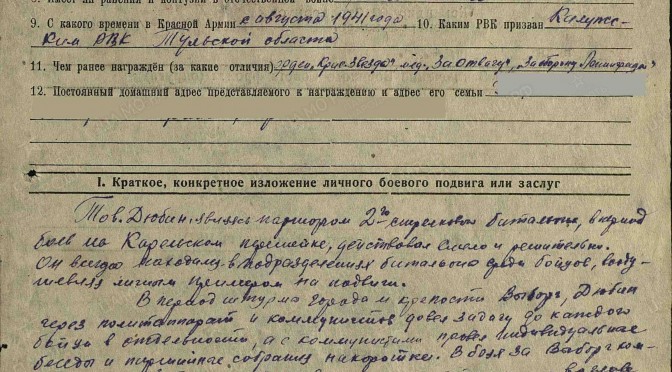 9. С какого времени в Красной Армии с августа 1941 года. 10. Каким РВК призван Калужс-
ким РВК Тульской области
11. Чем ранее награждён (за какие отличия) орден „Крас. Звезда" мед. „За отвагу", „За оборону Ленинграда"
12. Постоянный домашний адрес представляемого к награждению и адрес его семьи
I. Краткое, конкретное изложение личного боевого подвига или заслуг
Тов. Дюбин, являясь парторгом 2го стрелкового батальона, в период
боев на Карельском перешейке, действовал смело и решительно.
Он всегда находился в подразделениях батальона среди бойцов, вооду-
шевляя личным примером на подвиги.
В период штурма города и крепости Выборг, Дюбин
через политаппарат и коммунистов довел задачу до каждого
бойца в отдельности, а с коммунистами провел индивидуальные
беседы и партийные собрания накоротке. В боях за Выборг ком-